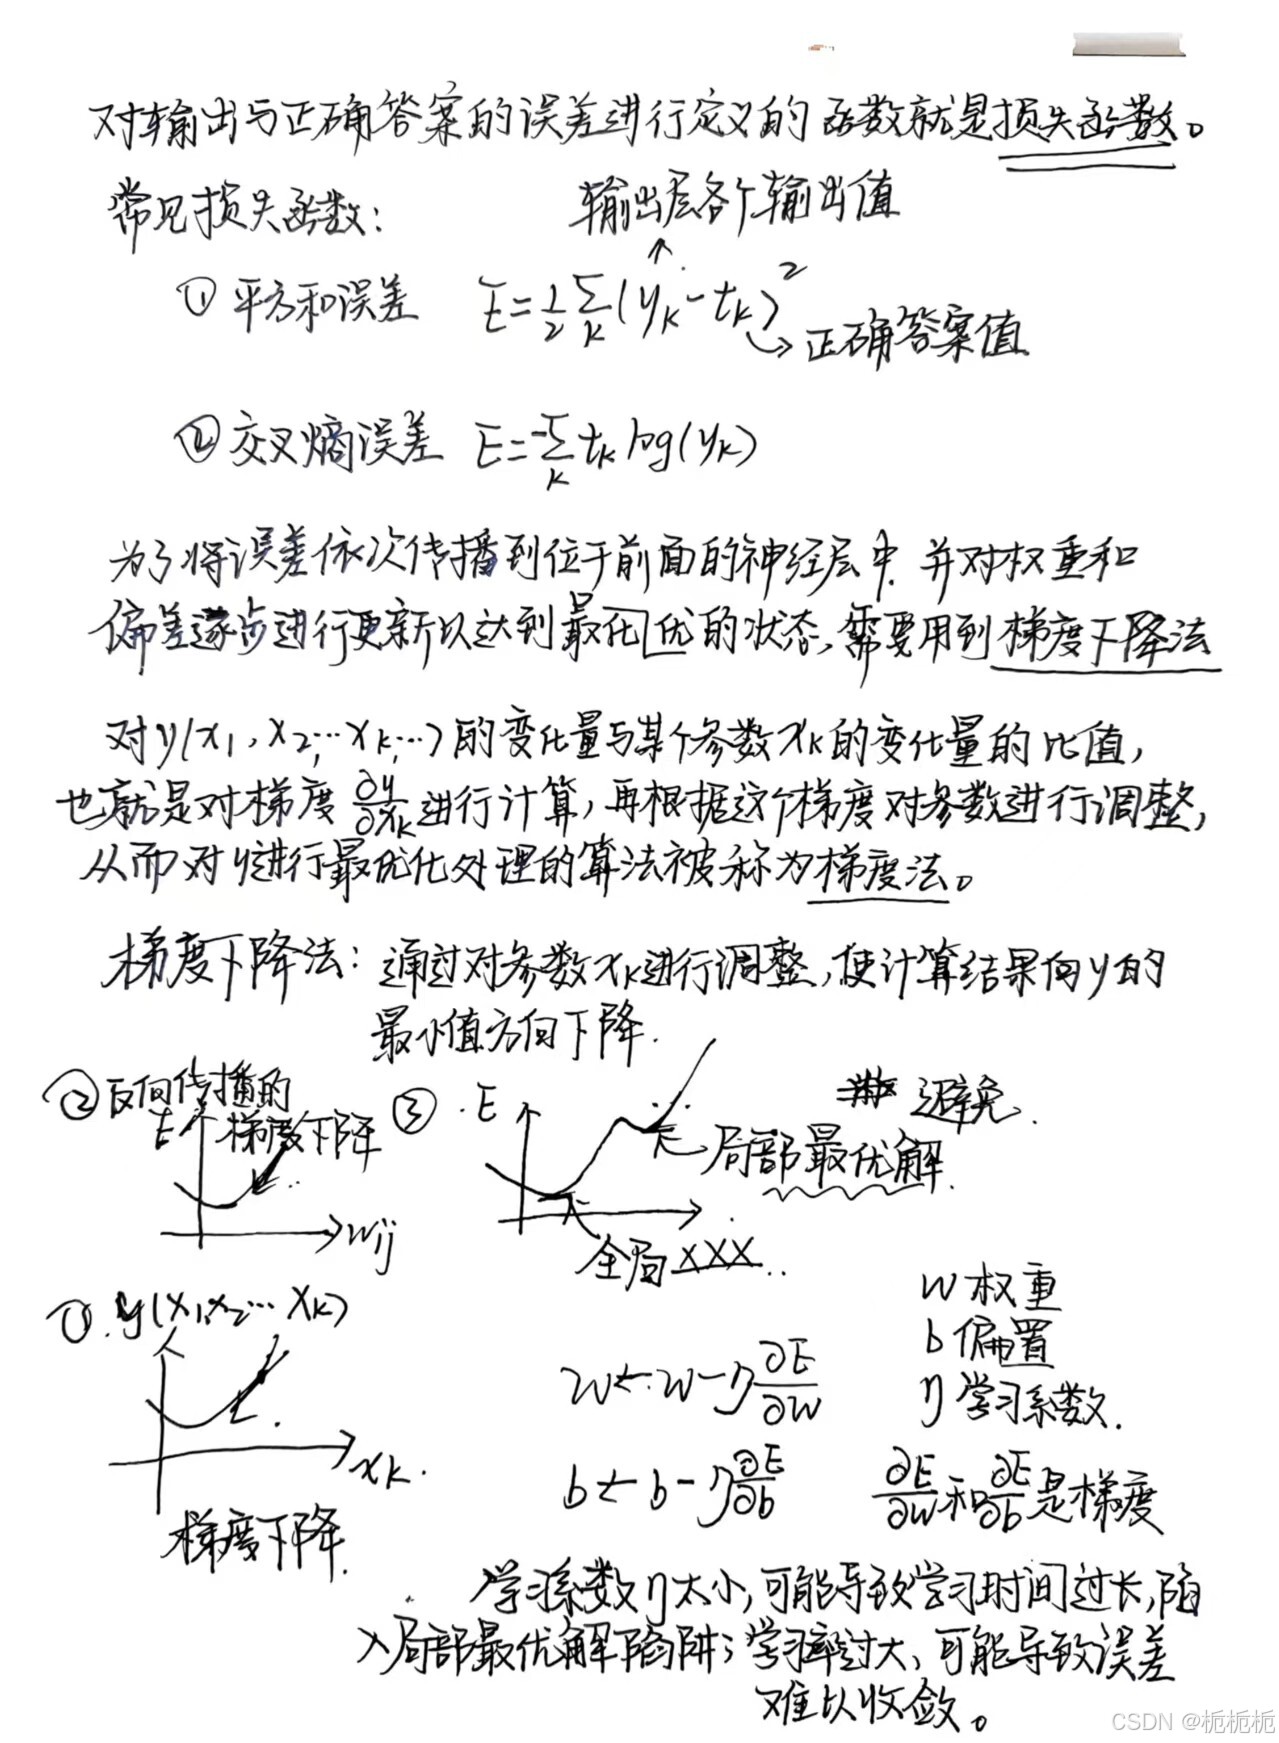 对输出与正确答案的误差进行定义的函数就是损失函数。
常见损失函数:
输出层各个输出值
① 平方和误差 E=½∑k(yk-tk)²
正确答案值
② 交叉熵误差 E=-∑k tk log(yk)
为了将误差依次传播到位于前面的神经层中.并对权重和
偏差逐步进行更新以达到最优的状态,需要用到梯度下降法
对y(x1,x2,…xk,…)的变化量与某个参数xk的变化量的比值,
也就是对梯度∂y/∂xk进行计算,再根据这个梯度对参数进行调整,
从而对y进行最优化处理的算法被称为梯度法。
梯度下降法:通过对参数xk进行调整,使计算结果向y的
最小值方向下降.
②反向传播的
梯度下降
E
wij
③ E
避免.
局部最优解.
全局XXX..
① y(x1,x2…xk)
xk.
梯度下降.
w 权重
b 偏置
η 学习系数.
w←w-η ∂E/∂w
b←b-η ∂E/∂b
∂E/∂w和∂E/∂b是梯度
学习系数η太小,可能导致学习时间过长,陷
入局部最优解陷阱;学习率过大,可能导致误差
难以收敛。
CSDN @栀栀栀